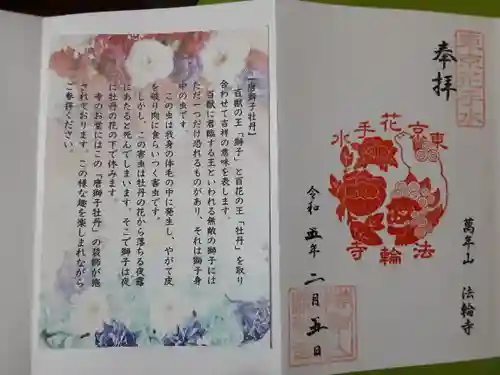 東京花手水
奉拝
東京花手水
法輪寺
萬年山 法輪寺
令和五年 二月五日
【唐獅子牡丹】
百獣の王「獅子」と百花の王「牡丹」を取り
合わせて吉祥の意味を表します。
百獣に君臨する王といわれる無敵の獅子には
ただ一つだけ恐れるものがあり、それは獅子身
中の虫です。
この虫は我身の体毛の中に発生し、やがて皮
を破り肉に食らいつく害虫です。
しかし、この害虫は牡丹の花から落ちる夜露
にあたると死んでしまいます。そこで獅子は夜
に牡丹の花の下で休みます。
寺のお堂にはこの「唐獅子牡丹」の装飾が施
されております。この様な趣を楽しまれながら
ご参拝ください。